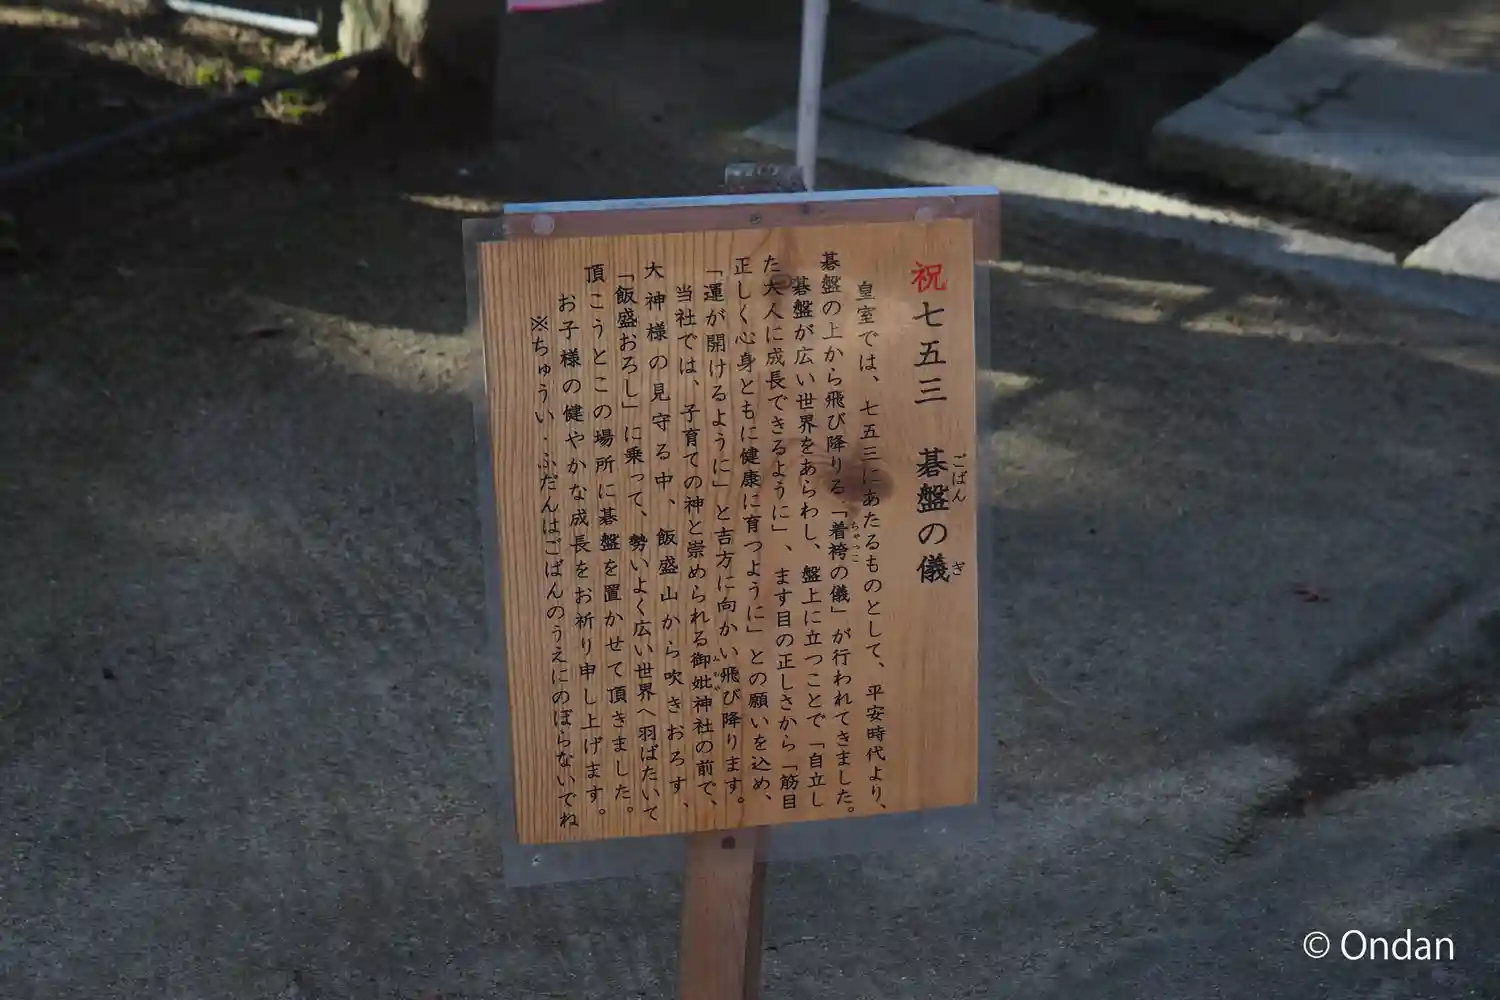 祝 七五三 碁盤の儀
ごばん ぎ
皇室では、七五三にあたるものとして、平安時代より、
碁盤の上から飛び降りる「着袴の儀」が行われてきました。
ちゃっこ
碁盤が広い世界をあらわし、盤上に立つことで「自立し
た大人に成長できるように」、ます目の正しさから「筋目
正しく心身ともに健康に育つように」との願いを込め、
「運が開けるように」と吉方に向かい飛び降ります。
当社では、子育ての神と崇められる御妣神社の前で、
大神様の見守る中、飯盛山から吹きおろす、
「飯盛おろし」に乗って、勢いよく広い世界へ羽ばたいて
頂こうとこの場所に碁盤を置かせて頂きました。
お子様の健やかな成長をお祈り申し上げます。
※ちゅうい・ふだんはごばんのうえにのぼらないでね
© Ondan